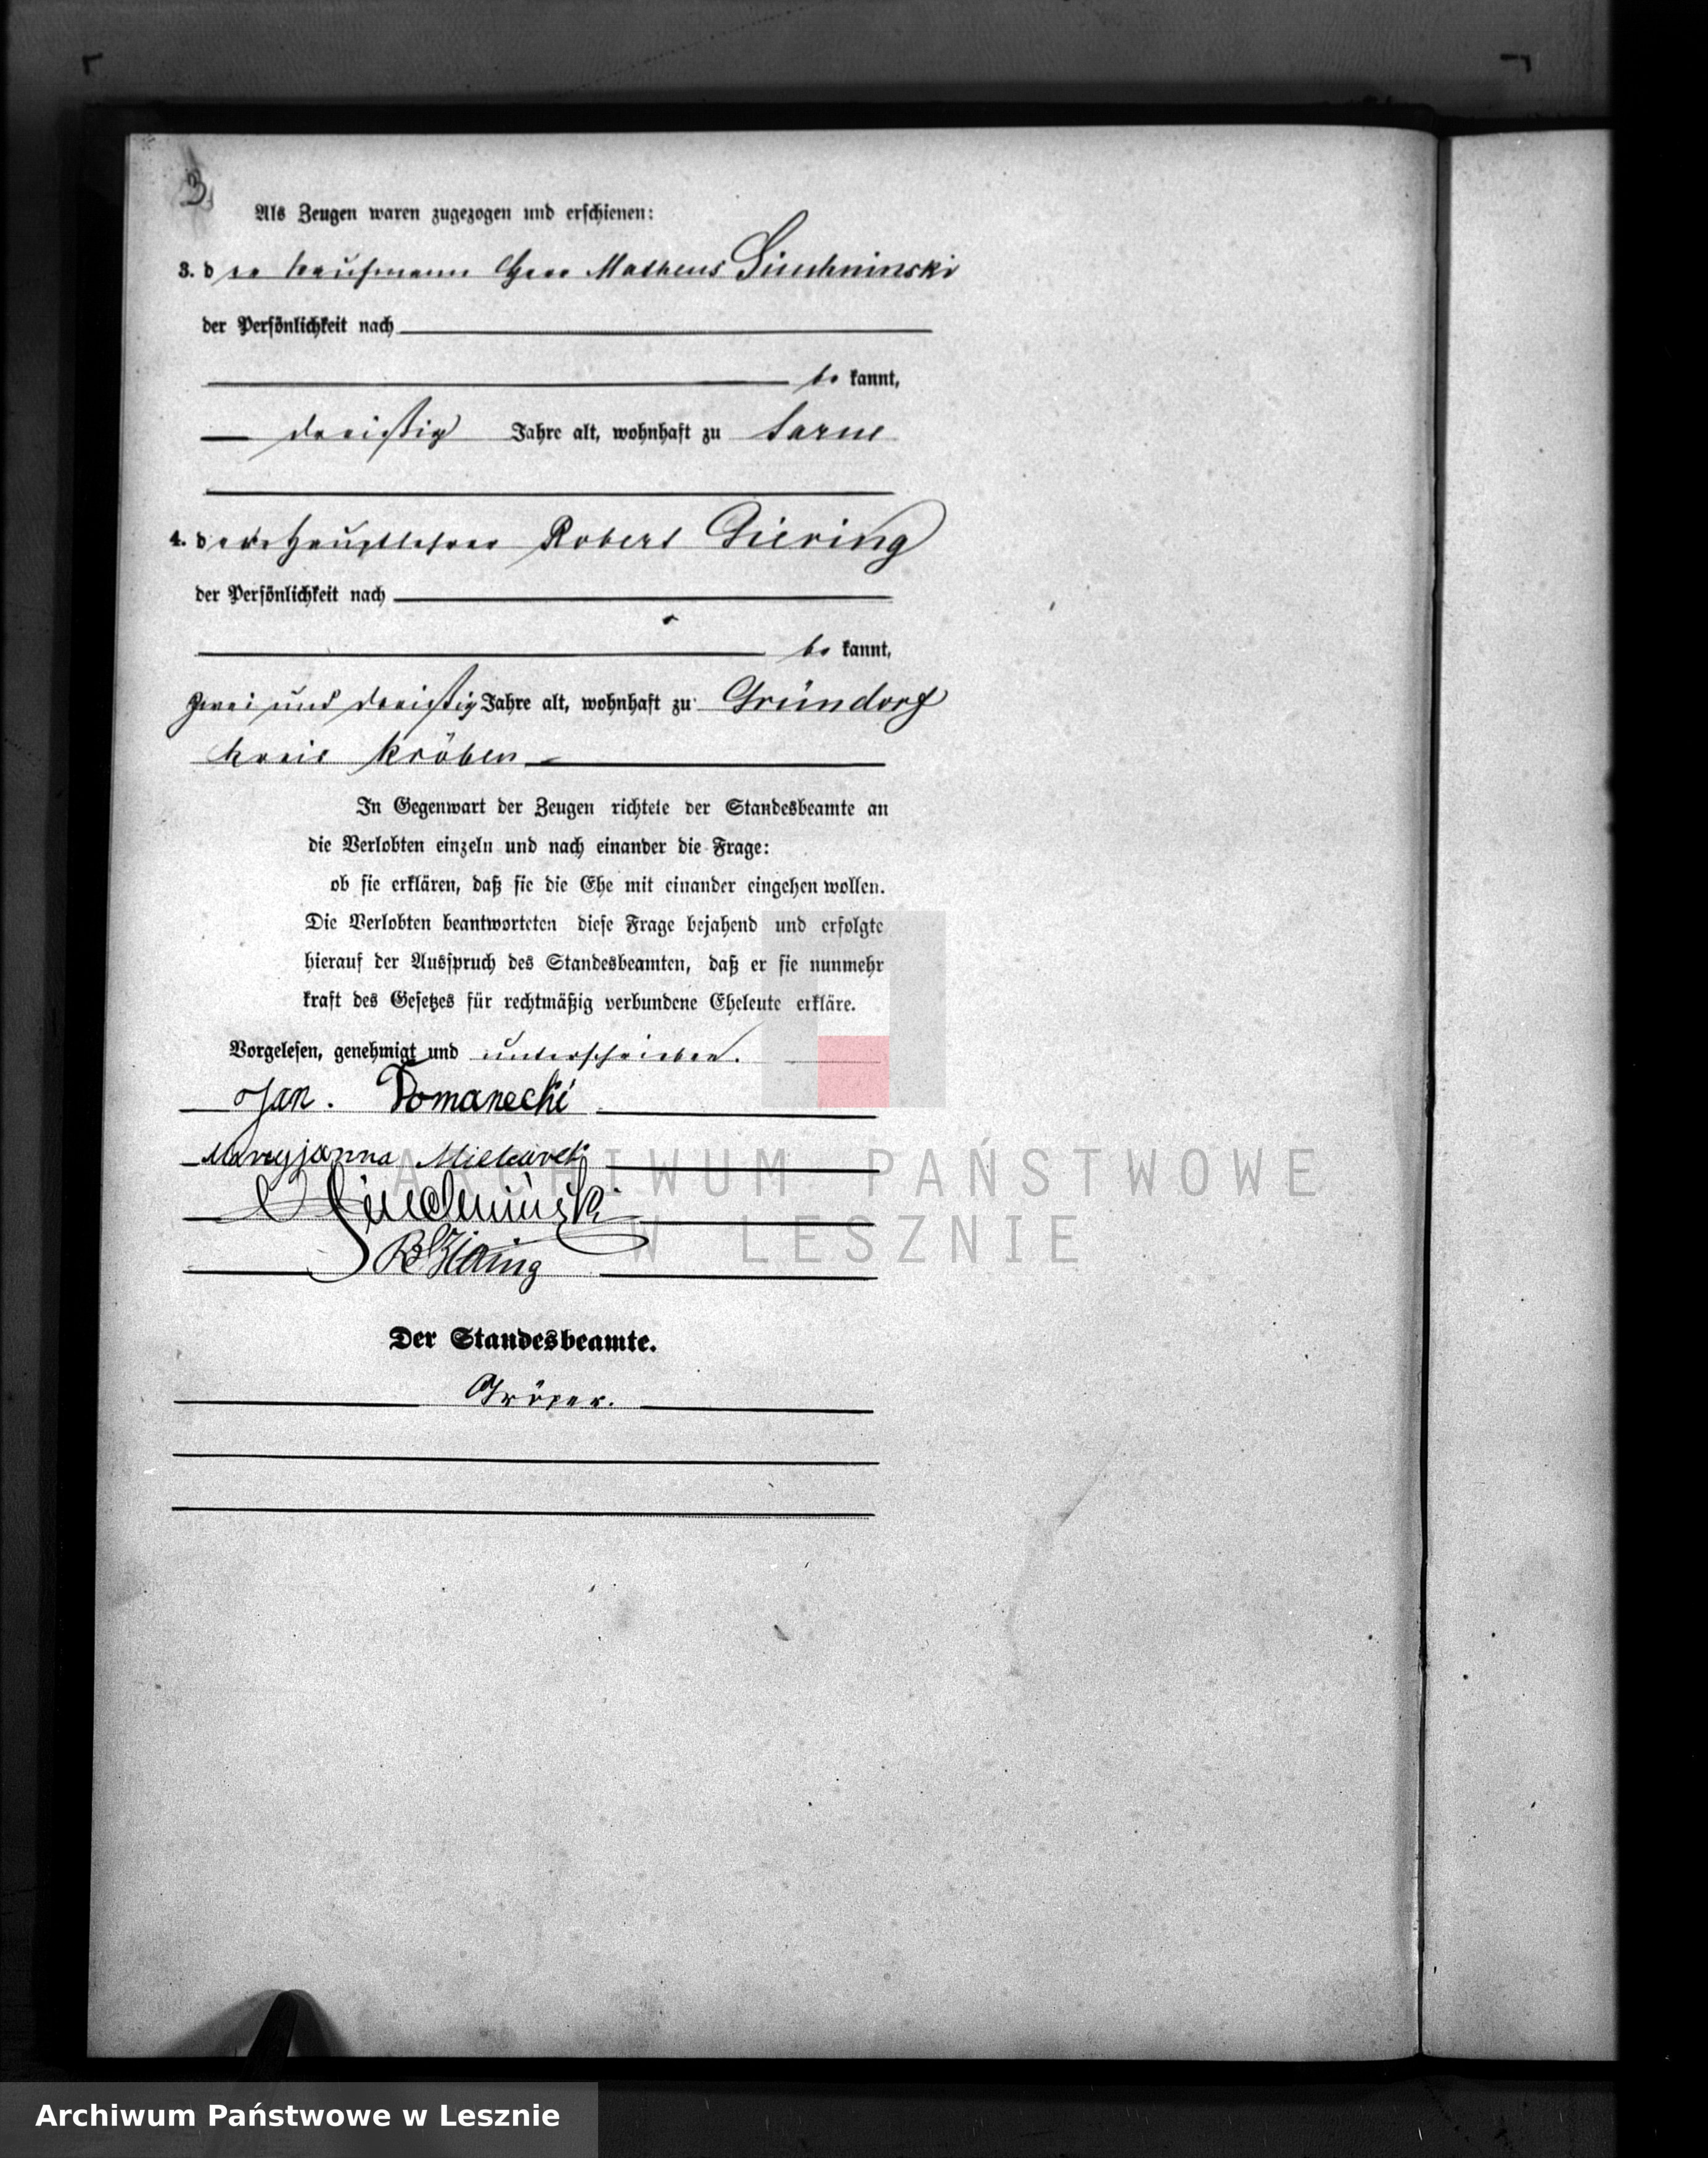 3
Als Zeugen waren zugezogen und erschienen:
3. der Kaufmann Herr Matheus Siuchninski
der Persönlichkeit nach
be kannt,
dreißig Jahre alt, wohnhaft zu Sarne
4. der Hauptlehrer Robert Giering
der Persönlichkeit nach
be kannt,
zwei und dreißig Jahre alt, wohnhaft zu Gründorf
Kreis Kröben
In Gegenwart der Zeugen richtete der Standesbeamte an
die Verlobten einzeln und nach einander die Frage:
ob sie erklären, daß sie die Ehe mit einander eingehen wollen.
Die Verlobten beantworteten diese Frage bejahend und erfolgte
hierauf der Ausspruch des Standesbeamten, daß er sie nunmehr
kraft des Gesetzes für rechtmäßig verbundene Eheleute erkläre.
Vorgelesen, genehmigt und unterschrieben.
Jan. Pomanecki
Maryjanna
Siuchninski
R Giering
Der Standesbeamte.
Gröger.
ARCHIWUM PAŃSTWOWE
W LESZNIE
Archiwum Państwowe w Lesznie